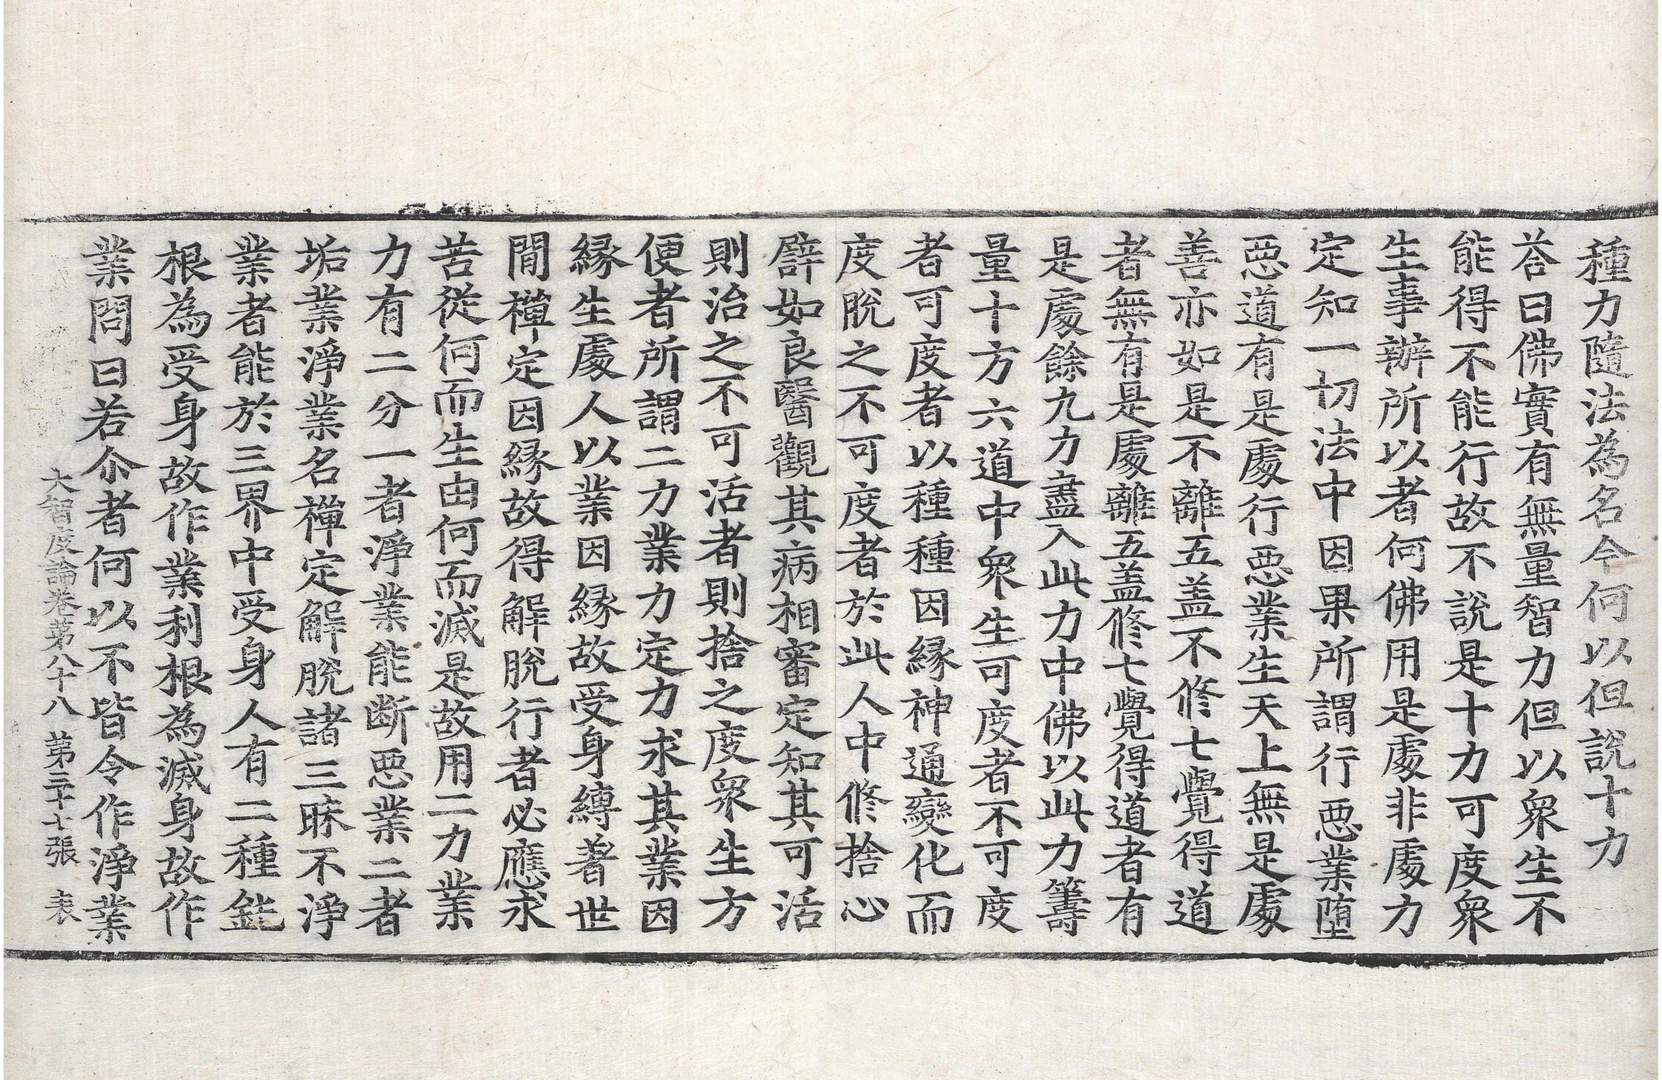 種力隨法為名今何以但說十力
荅曰佛實有無量智力但以衆生不
能得不能行故不說是十力可度衆
生事辦所以者何佛用是處非處力
定知一切法中因果所謂行惡業墮
惡道有是處行惡業生天上無是處
善亦如是不離五盖不修七覺得道
者無有是處離五盖修七覺得道者有
是處餘九力盡入此力中佛以此力籌
量十方六道中衆生可度者不可度
者可度者以種種因縁神通變化而
度脫之不可度者於此人中修捨心
譬如良醫觀其病相審定知其可活
則治之不可活者則捨之度衆生方
便者所謂二力業力定力求其業因
縁生處人以業因縁故受身縛著世
間禪定因縁故得解脫行者必應求
苦從何而生由何而滅是故用二力業
力有二分一者淨業能斷惡業二者
垢業淨業名禪定解脫諸三昧不淨
業者能於三界中受身人有二種鈍
根為受身故作業利根為滅身故作
業問曰若尒者何以不皆令作淨業
大智度論卷第八十八 第三十七張 表